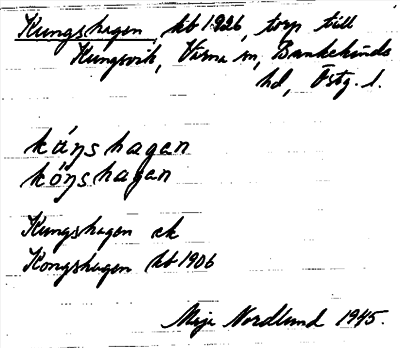 Kungshagen kb 1926, torp till
Kungsvik, Värna sn, Bankekinds
hd, Östg. l.
káŋshagan
kóŋshagan
Kungshagen ek
Kongshagen kb 1906
Maje Nordlund 1945.